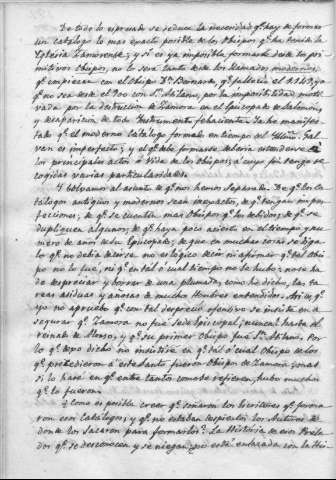 De todo lo espresado se deduce la necesidad q.e hay de formar
un catalogo lo mas exacto posible de los Obispos q.e ha tenido la
Iglesia Zamorense; y si es ya imposible formarle desde los pri-
mitivos Obispos, no lo sera tanto desde los llamados modernos,
q.e empiezan con el Obispo D.n Bernardo, q.e fallecio el 1149, ya
q.e no sea desde el 900 con S. Atilano, por la imposibilidad moti-
vada por la destruccion de Zamora en el Episcopado de Salomon,
y desaparicion de todo Instrumento fehaciente. Ya he manifes-
tado q.e el moderno Catalogo formado en tiempo del Illmo. Gal-
van es imperfecto; y el q.e debe formarse deberia estenderse a
los principales actos o Vida de los Obispos; a cuyo fin tengo re-
cogidas varias particularidades.
Y volvamos al asunto de q.e nos hemos separado. De q.e los ca-
talogos antiguos y modernos sean inexactos, de q.e tengan imper-
fecciones; de q.e se cuenten mas Obispos q.e los debidos; de q.e se
dupliquen algunos; de q.e haya poco acierto en el tiempo y nu-
mero de años de su Episcopado; de que en muchas cosas se diga
lo q.e no debia decirse no es logico decir ni afirmar q.e tal Obis-
po no lo fue, ni q.e en tal o cual tiempo no le hubo; no se ha
de despreciar y borrar de una plumada, como he dicho, las ta-
reas asiduas y añosas de mucho Hombres entendidos. Asi es q.e
yo no apruebo q.e con tal desprecio se insista en a
segurar q.e Zamora no fue Sede Episcopal,
reinado de Alonso, y q.e su primer Obispo fue S. Atilano. Por
lo q.e dicho no insistire en q.e tal o cual Obispo de los
q.e precedieron a este Santo fueron Obispos de Zamora
si lo hare en q.e entre tantos como se refieren, hubo muchos
q.e lo fueron.
Y como es posible creer q.e soñaron los Escritores q.e forma
ron con Catalogos; y q.e no estaban despiertos los Autores de
donde los sacaron para formarlos? La Historia de esos Prela-
dos q.e se desconocen y se niegan, q.e esta enlazada con la His-